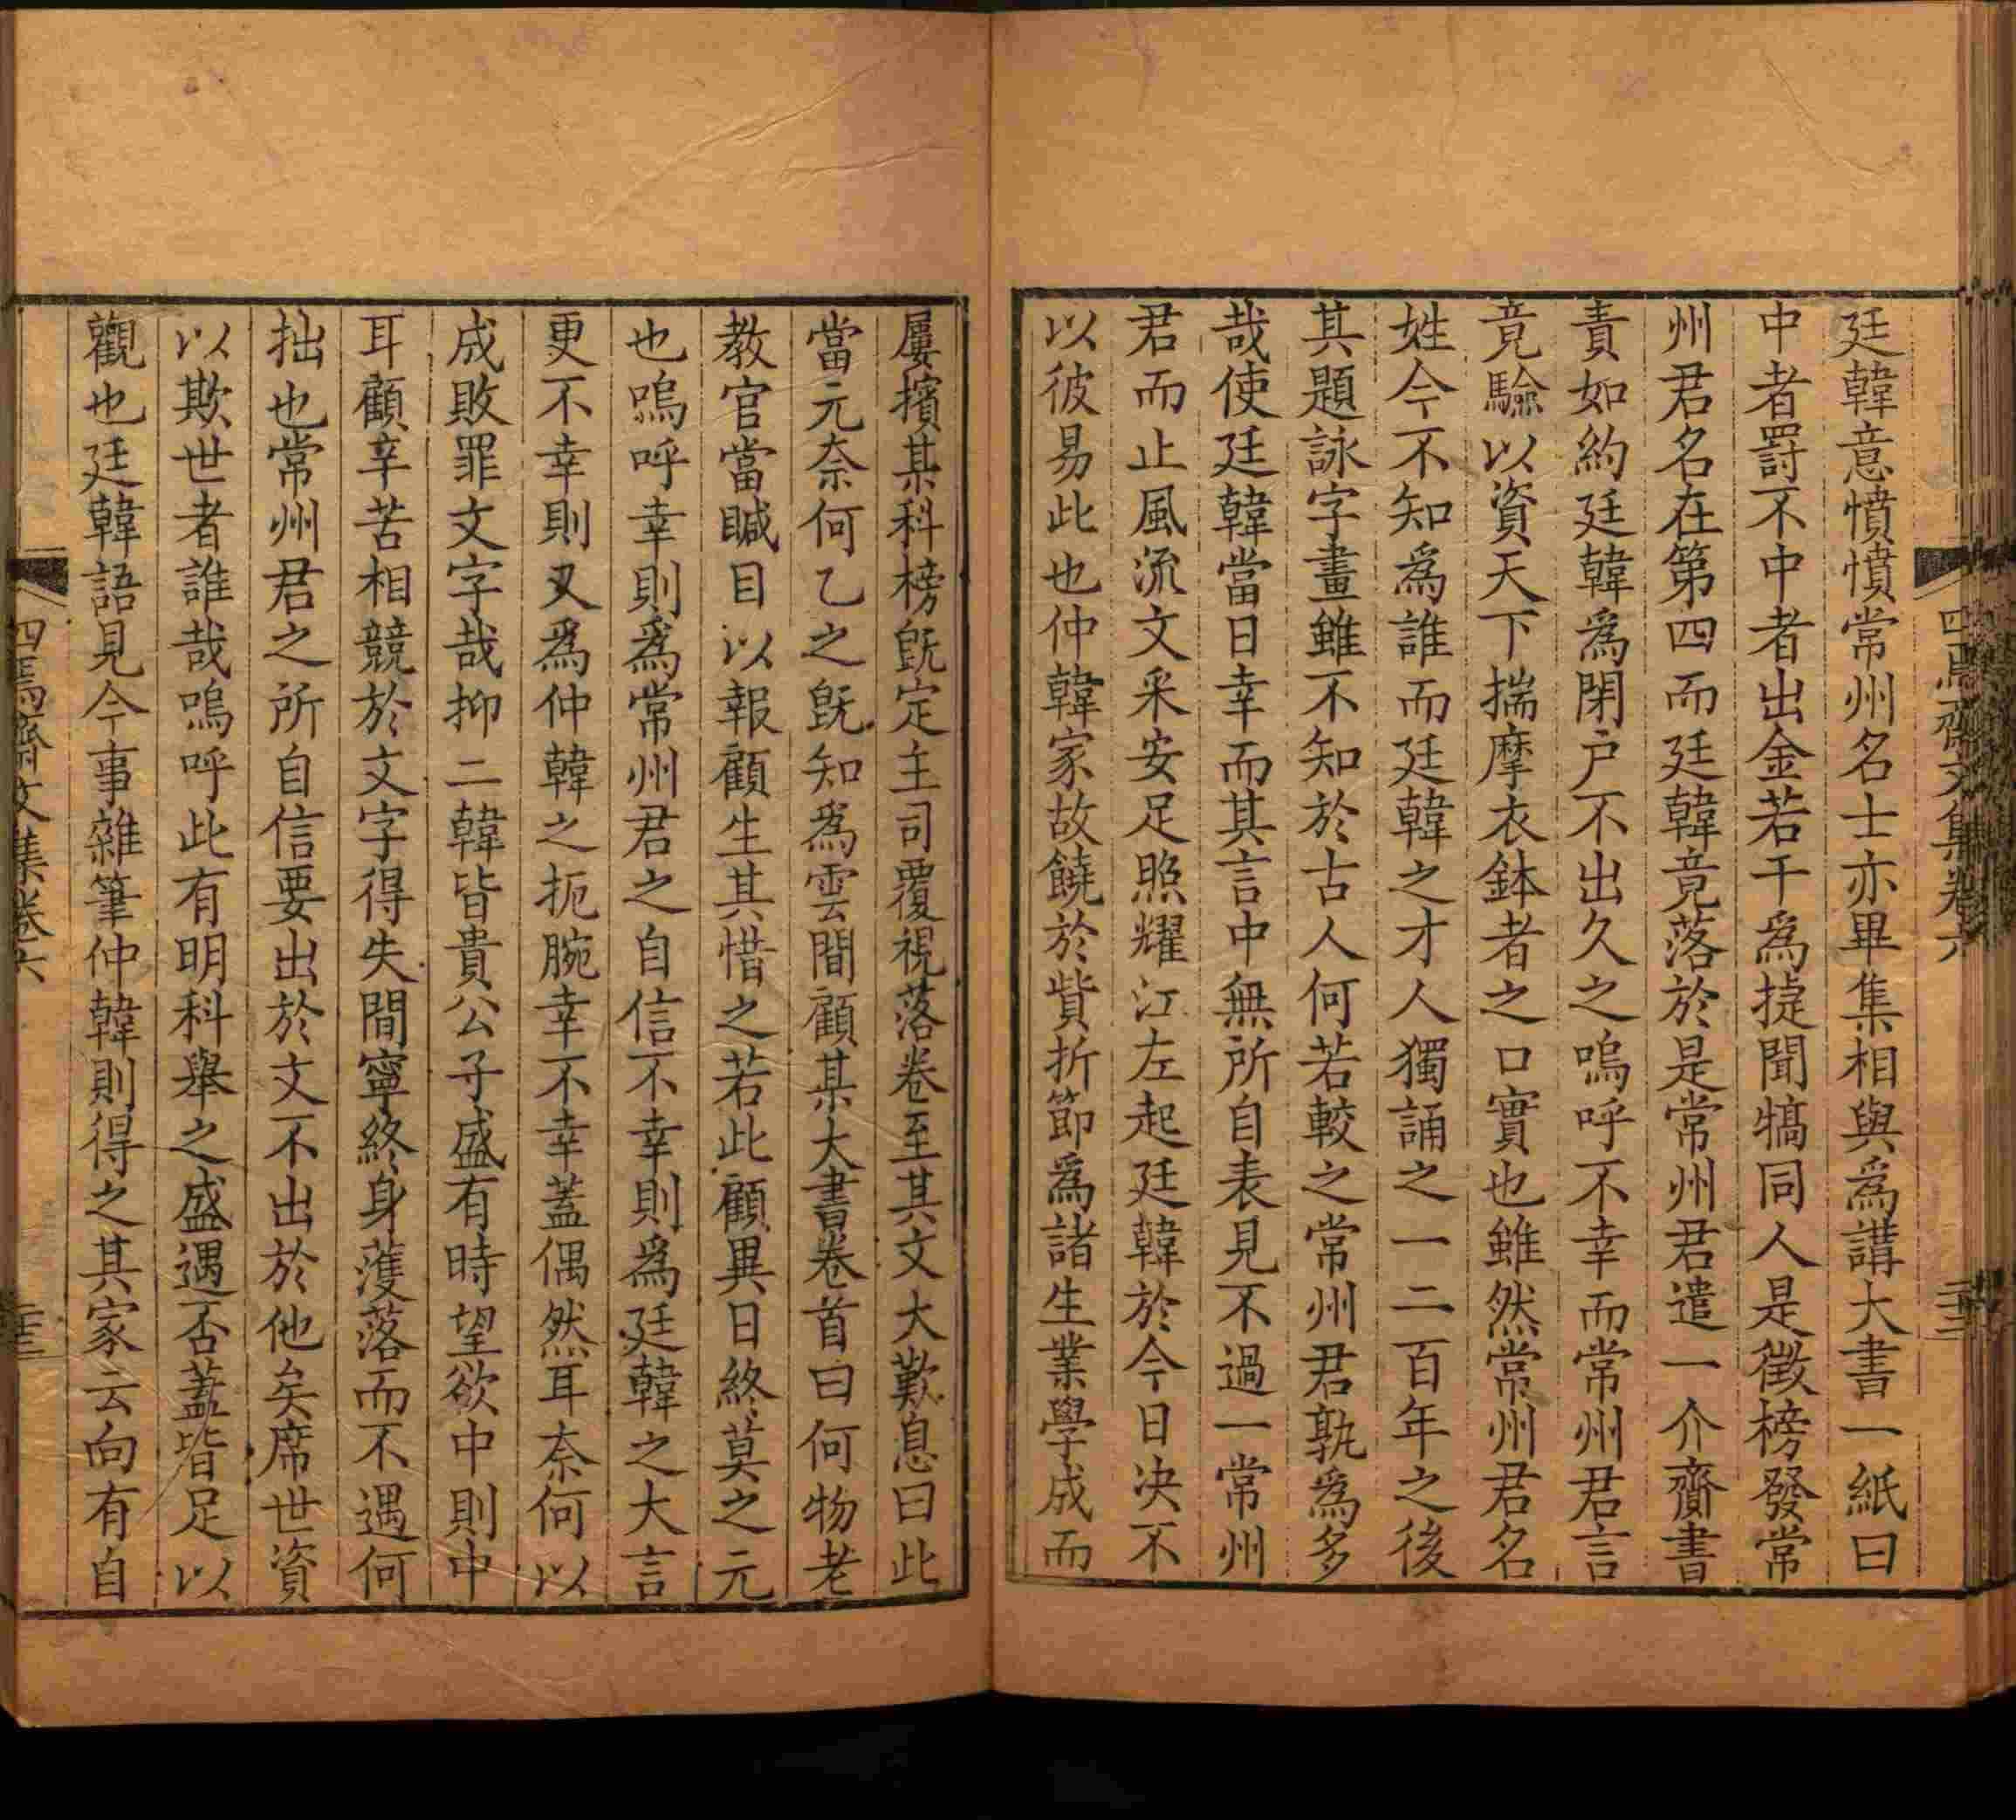 廷韓意憤憤常州名士亦畢集相與爲講大書一紙曰
中者罸不中者出金若干爲㨗聞犒同人是徵榜發常
州君名在第四而廷韓竟落於是常州君遣一介齎書
責如約廷韓爲閉户不出久之嗚呼不幸而常州君言
竟驗以資天下揣摩衣鉢者之口實也雖然常州君名
姓今不知爲誰而廷韓之才人獨誦之一二百年之後
其題詠字畫雖不知於古人何若較之常州君孰爲多
哉使廷韓當日幸而其言中無所自表見不過一常州
君而止風流文采安足照耀江左起廷韓於今日决不
以彼易此也仲韓家故饒於貲折節爲諸生業學成而
屢擯某科榜旣定主司覆視落卷至其文大歎息曰此
當元奈何乙之旣知爲雲間顧某大書卷首曰何物老
教官當瞯目以報顧生其惜之若此顧異日終莫之元
也嗚呼幸則爲常州君之自信不幸則爲廷韓之大言
更不幸則又爲仲韓之扼腕幸不幸蓋偶然耳奈何以
成敗罪文字哉抑二韓皆貴公子盛有時望欲中則中
耳顧辛苦相競於文字得失間寧終身蓬落而不遇何
拙也常州君之所自信要出於文不出於他矣席世資
以欺世者誰哉嗚呼此有明科舉之盛遇否蓋皆足以
觀也廷韓語見今事雜筆仲韓則得之其家云向有自
四焉齋文集卷六